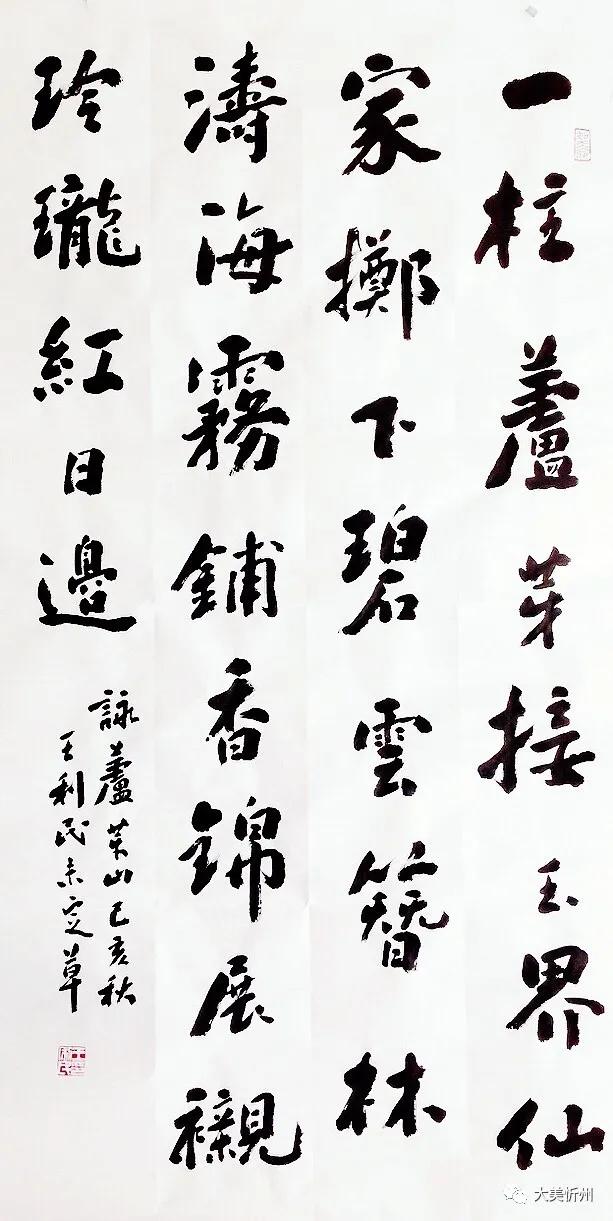 一柱蘆芽接玉界仙
家擲下碧雲簪林
濤海霧鋪香錦展襯
玲瓏紅日邊
詠蘆芽山己亥秋
王利民未定草
大美忻州